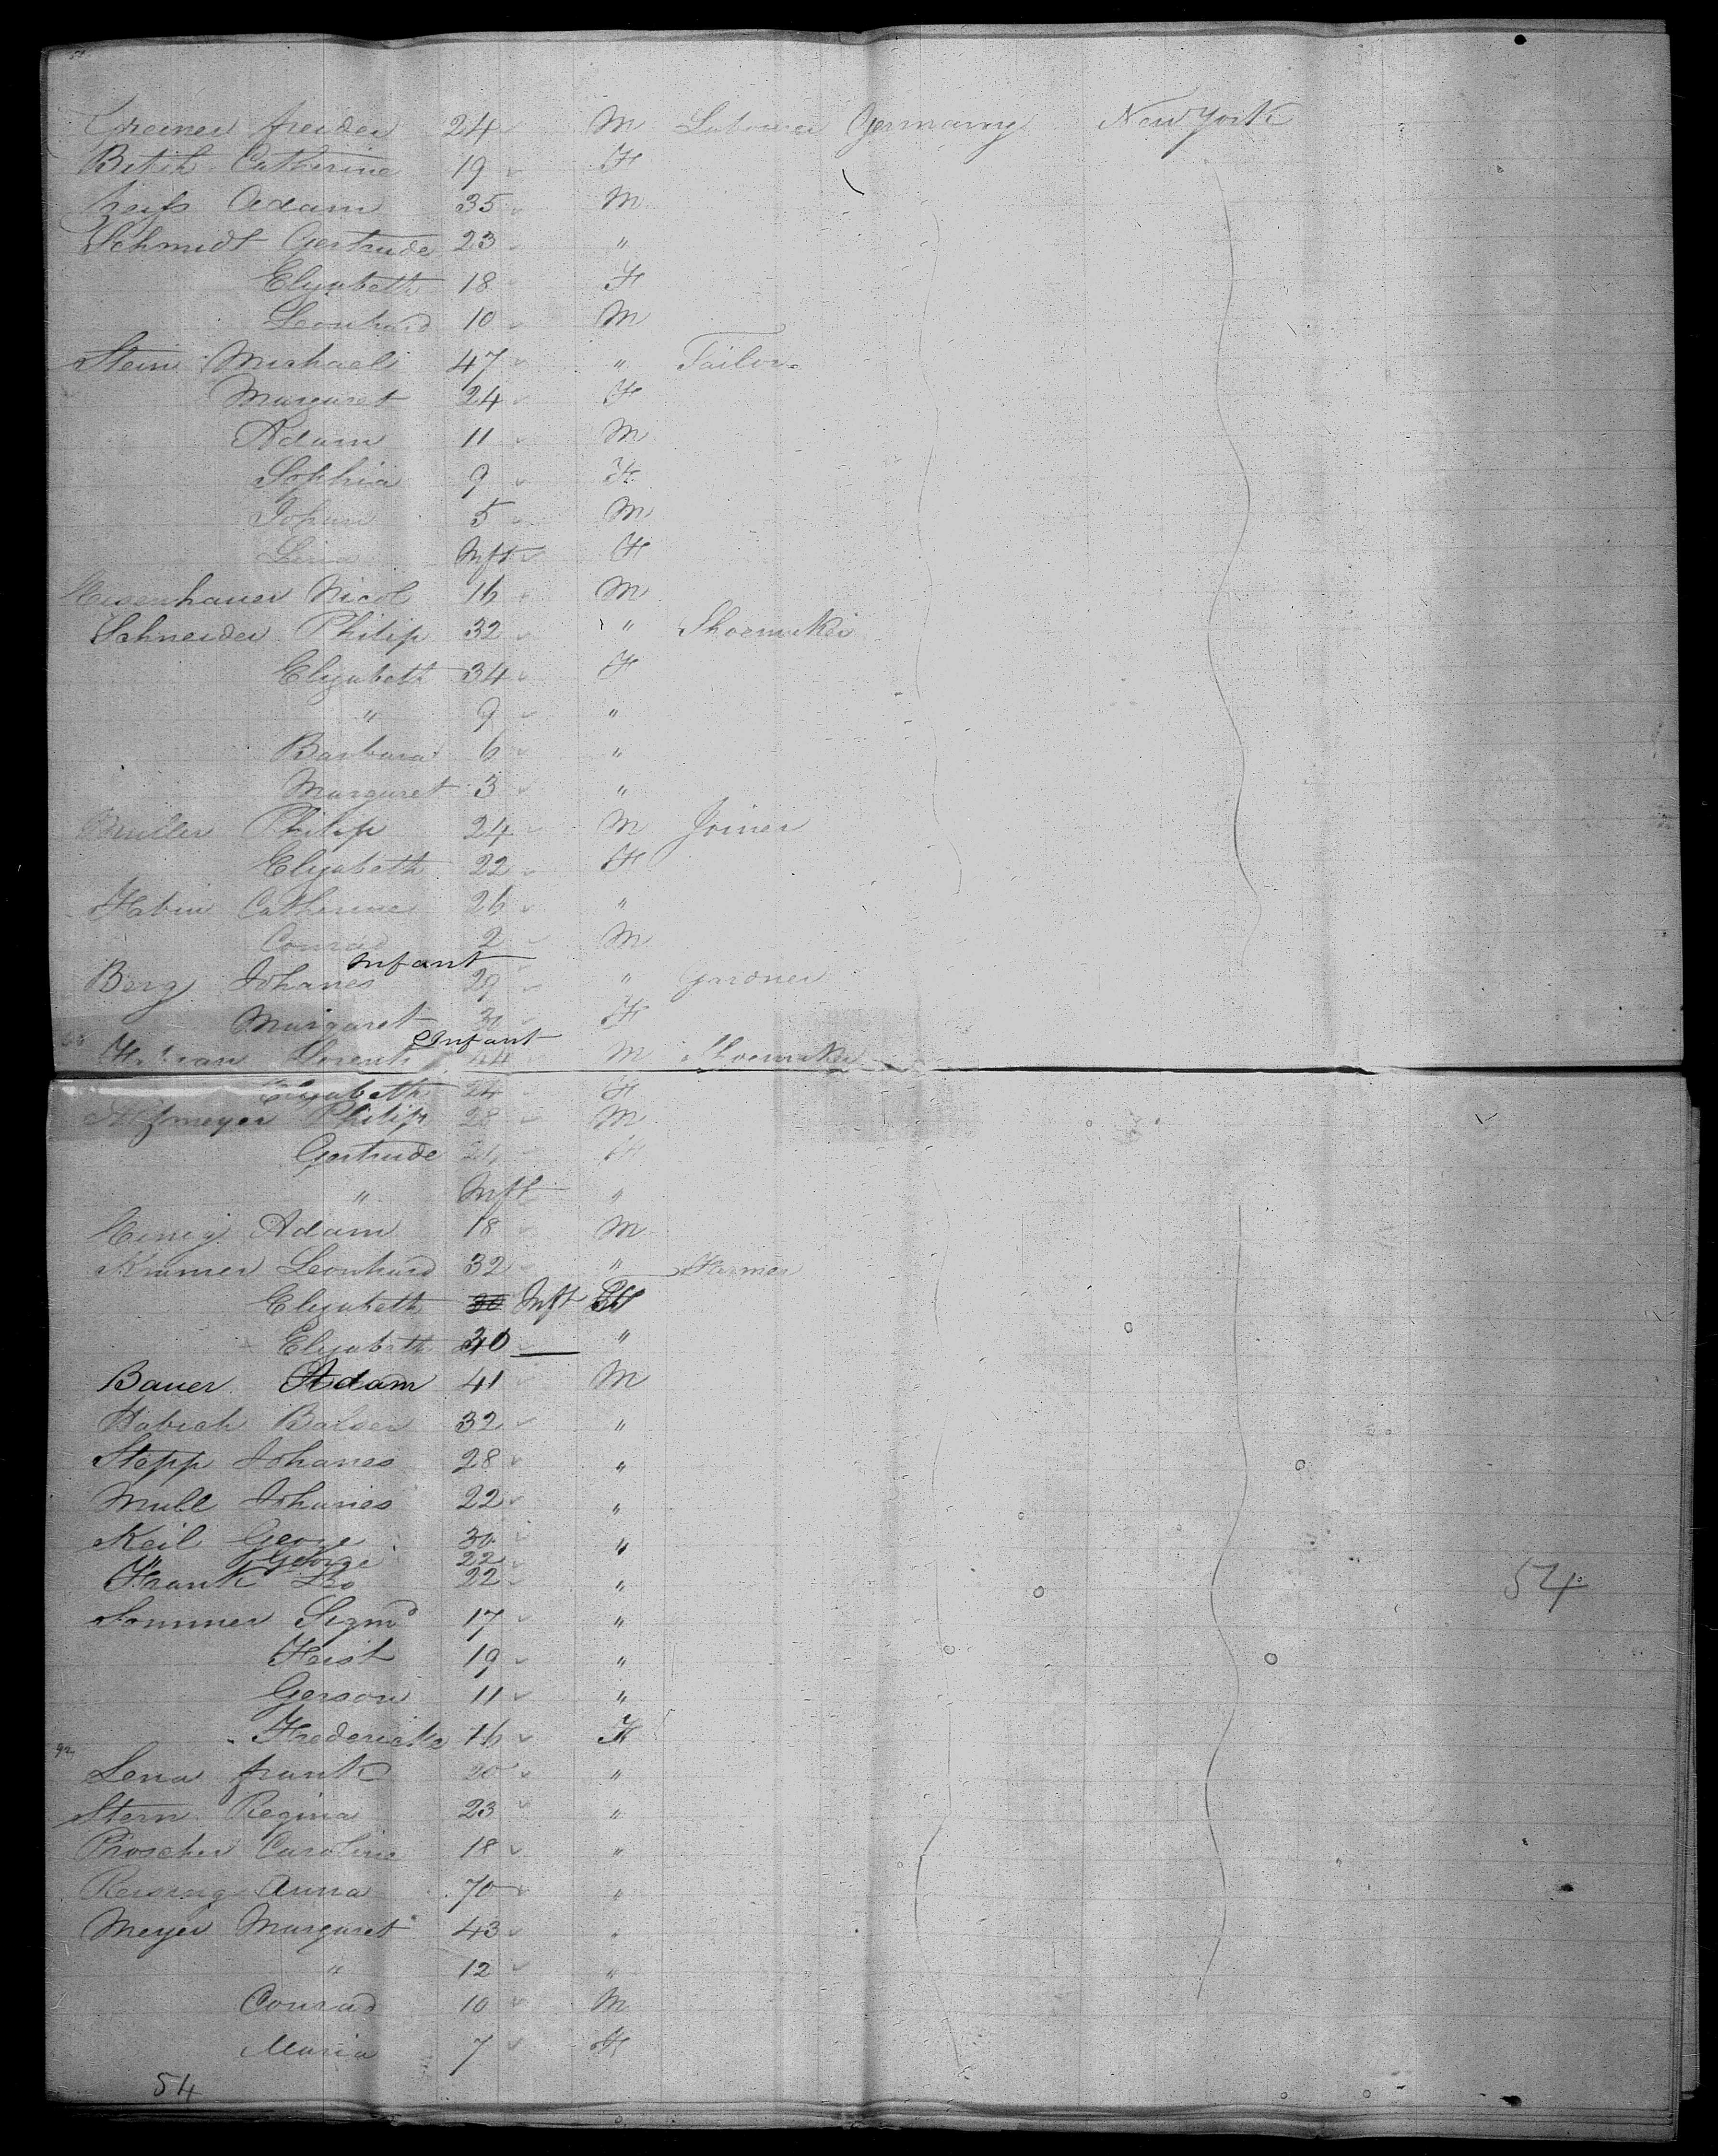 Greiner freider 24 M Labourer Germany New York
Catherine 19 F
Adam 35 M
Schmidt Gertrude 23 "
Elyzabeth 18 F
Leonhard 10 M
Stein Michael 47 " Tailor
Margaret 24 F
Adam 11 M
Sophia 9 F
Johan 5 M
Lina Inft F
Eisenhauer Nicol 16 M
Schneider Philip 32 " Shoemaker
Elyzabeth 34 F
" 9 "
Barbara 6 "
Margaret 3 "
Philip 24 M Joiner
Elyzabeth 22 F
Catherine 26 "
Conrad 2 M
Infant
Berg Johanes 29 " gardner
Margaret 30 F
Infant
44 M Shoemaker
Elyzabeth 24 F
Philip 28 M
Gertrude F
" Inft "
Henig Adam 18 M
Kramer Leonhard 32 " Farmer
Elyzabeth Inft F
Elyzabeth 30 "
Bauer Adam 41 M
Habich Balser 32 "
Stepp Johanes 28 "
Mull Johanes 22 "
Keil George 30 "
George 22
Frank Leo 22 "
Sommer Sigmd 17 "
Feist 19 "
Gerson 11 "
Fredericke 16 F
Lena frank 20 "
Stern Regina 23 "
Proscher Caroline 18 "
Anna 70 "
Meyer Margaret 43 "
" 12 "
Conrad 10 M
Maria 7 F
54
54